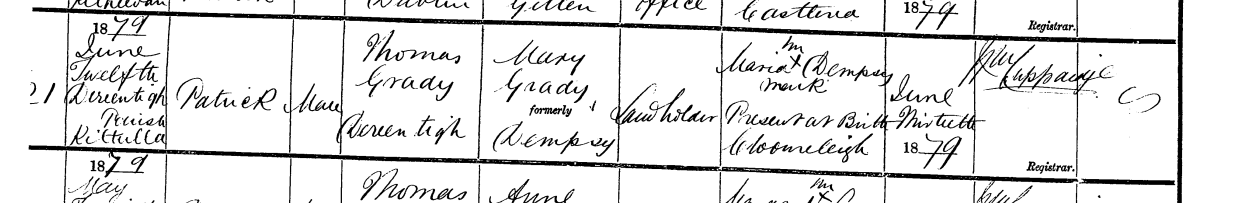 Dublin Office Easttina 1879
Registrar.
1879
June
Twelfth
Dereentigh
Parish
Kittulla
21 Patrick Male
Thomas
Grady
Dereentigh
Mary
Grady
formerly
Dempsy
Landholder
Maria X Dempsy
mark
Present at Birth
Cloonreleigh
June
Thirtieth
1879
Cappaige
Registrar.
1879
May
Thomas
Anne